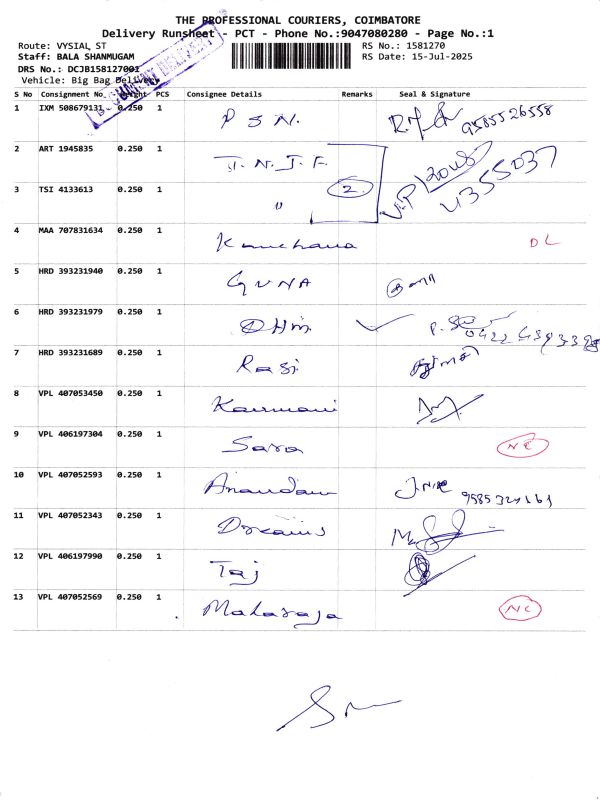 THE PROFESSIONAL COURIERS, COIMBATORE
Delivery Runsheet - PCT - Phone No.:9047080280 - Page No.:1
Route: VYSIAL ST
RS No.: 1581270
Staff: BALA SHANMUGAM
RS Date: 15-Jul-2025
DRS No.: DCJB158127001
Vehicle: Big Bag Delivery
S No Consignment No. Weight PCS Consignee Details Remarks Seal & Signature
1 IXM 508679131 0.250 1 P S N. 9585526558
2 ART 1945835 0.250 1 J.N.J.F.
3 TSI 4133613 0.250 1 " 2
4 MAA 707831634 0.250 1 Kanchana DL
5 HRD 393231940 0.250 1 GUNA
6 HRD 393231979 0.250 1 DHM
7 HRD 393231689 0.250 1 Rasi
8 VPL 407053450 0.250 1
9 VPL 406197304 0.250 1 Sara
10 VPL 407052593 0.250 1 Anandam
11 VPL 407052343 0.250 1 Dreams
12 VPL 406197990 0.250 1 Taj
13 VPL 407052569 0.250 1 Maharaja NC